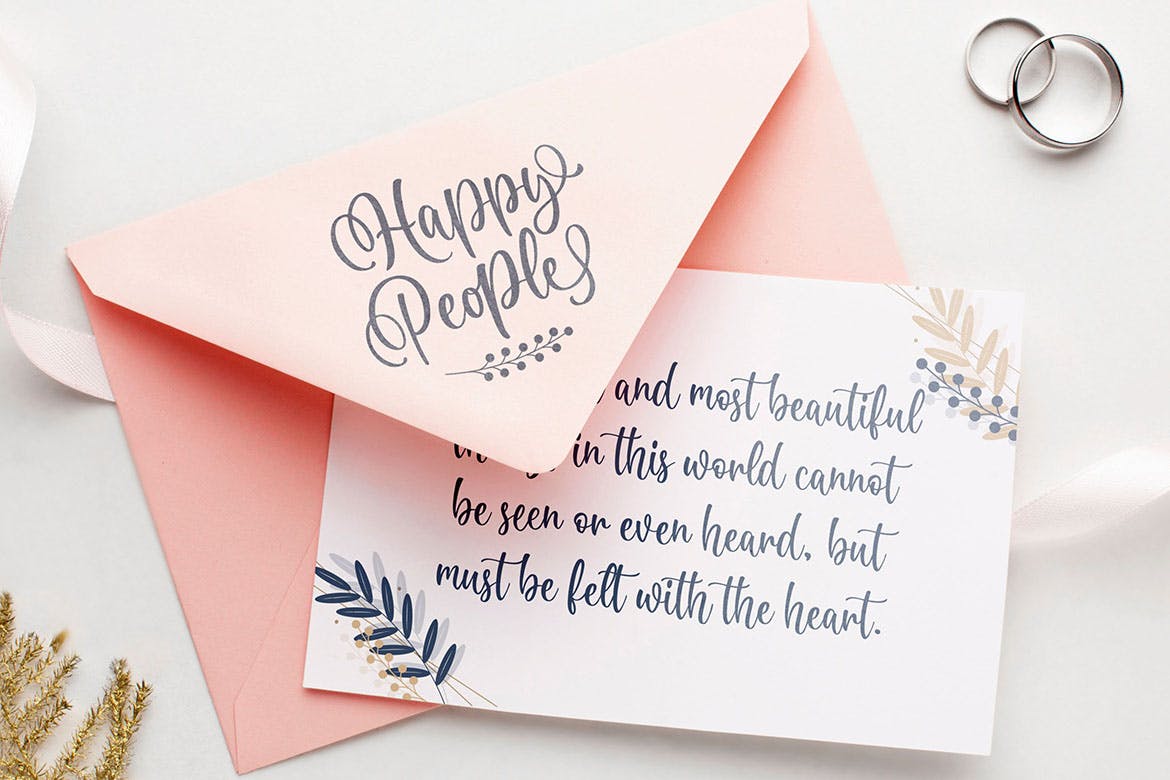 Happy
People
and most beautiful
in this world cannot
be seen or even heard, but
must be felt with the heart.